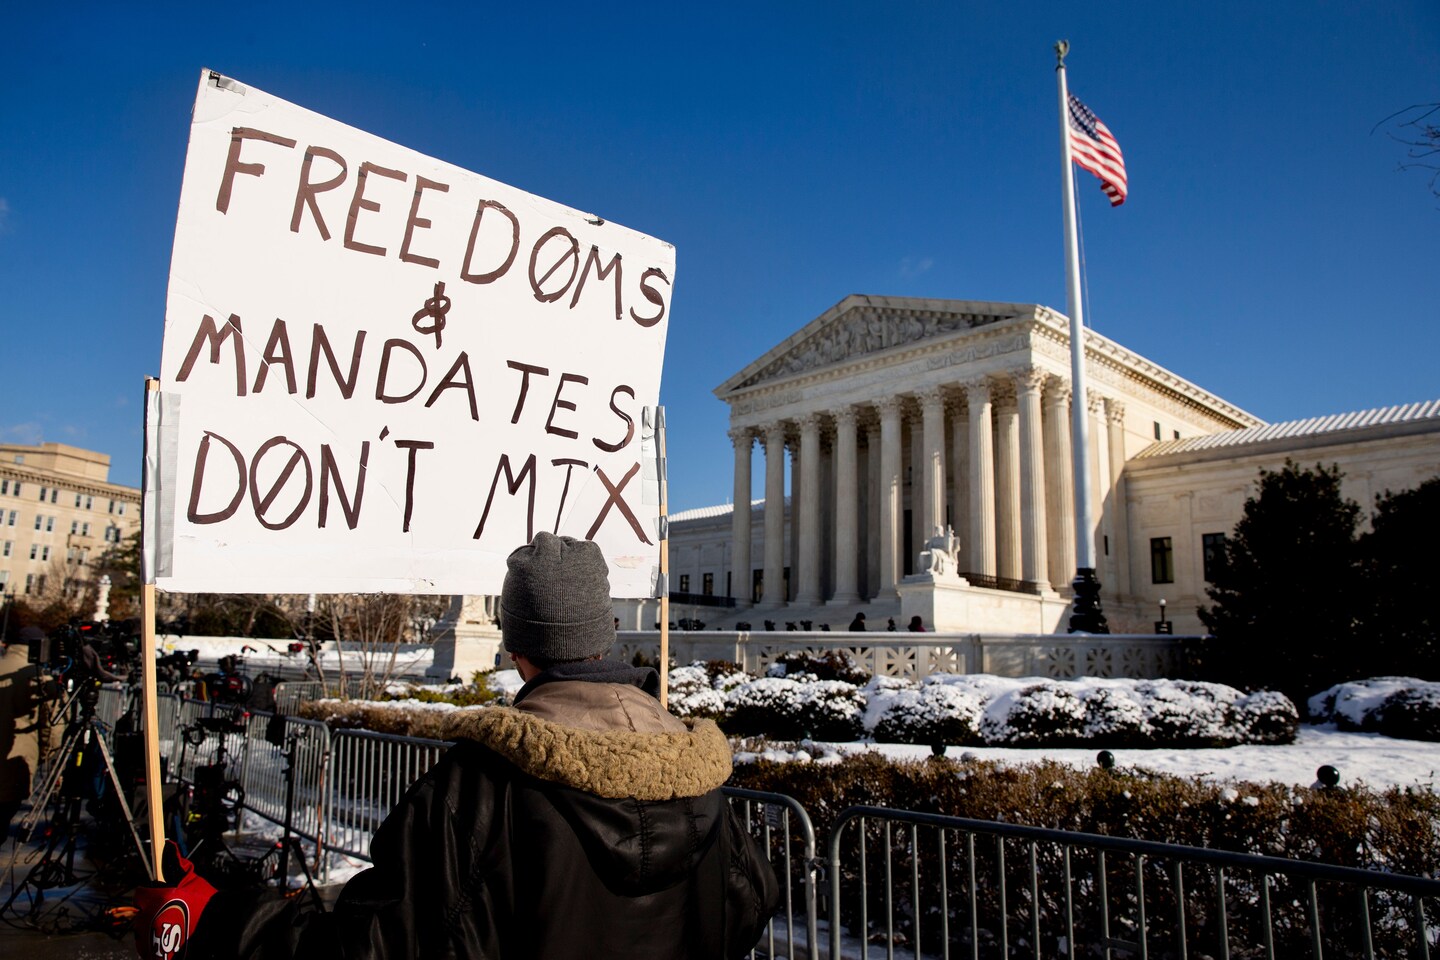 FREEDØMS
&
MANDATES
DØN'T MIX
SF